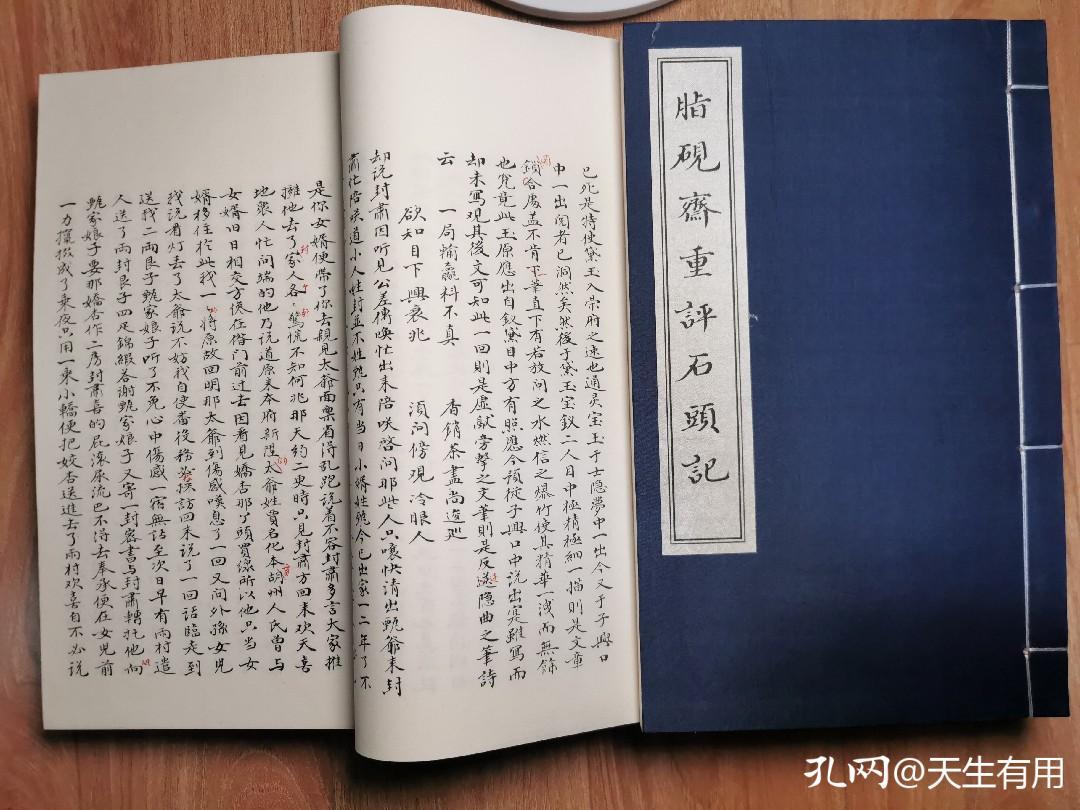 脂硯齋重評石頭記
已先是特使黛玉入榮府之速也通灵宝玉于士隐夢中一出今又于子興口
中一出阅者已洞然矣然後于黛玉宝釵二人目中極精極細一描則是文章
鎖合處盖不肯下筆直下有若放闸之水燃信之爆竹使其精華一洩而無餘
也究竟此玉原應出自釵黛目中方有照應今預從子興口中說出寔雖寫而
却未寫观其後文可知此一回則是虛敲旁擊之文筆則是反逆隐曲之筆詩
云
一局輸贏料不真 香銷茶盡尚逡巡
欲知目下興衰兆 須问傍观冷眼人
却说封肅因听見公差傳喚忙出来陪咲啓问那些人只嚷快请出甄爺来封
肅忙陪咲道小人姓封並不姓甄只有当日小婿姓甄今已出家一二年了不
是你女婿便帶了你去親見太爺面禀省得乱跑说着不容封肅多言大家推
擁他去了家人各驚慌不知何兆那天约二更時只見封肅方回来欢天喜
地衆人忙问端的他乃说道原来本府新陞太爺姓賈名化本胡州人氏曾与
女婿旧日相交方纔在偺门前过去因看見嬌杏那丫頭買線所以他只当女
婿移住於此我一将原故回明那太爺到傷感嘆息了一回又问外孫女児
我说看灯丢了太爺说不妨我自使番役務必採訪回来说了一回话臨走到
送我二兩艮子甄家娘子听了不免心中傷感一宿無话至次日早有雨村遣
人送了兩封艮子四疋錦緞答谢甄家娘子又寄一封密書与封肅轉托他向
甄家娘子要那嬌杏作二房封肅喜的屁滚尿流巴不得去奉承便在女児前
一力攛掇成了乘夜只用一乘小轎便把姣杏送進去了雨村欢喜自不必说
孔网@天生有用